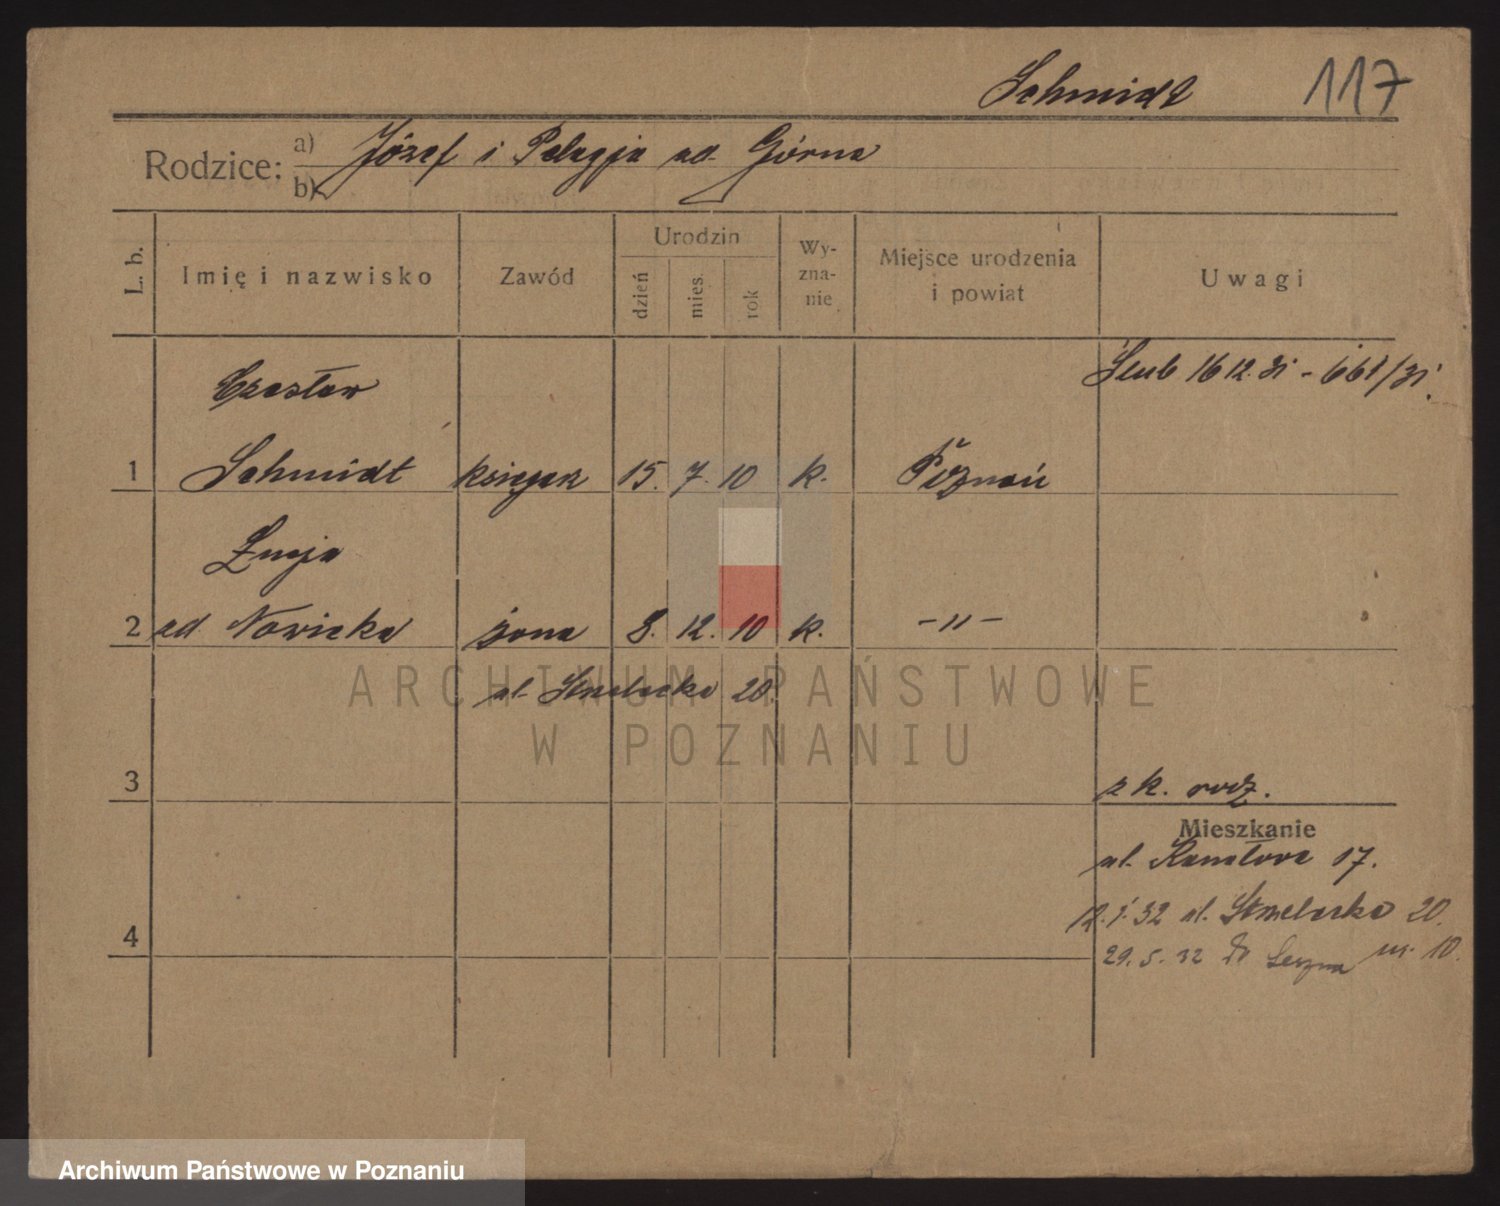 Schmidt 117
Rodzice: a) Józef i Pelagja ad. Górna
b)
L. b.
Imię i nazwisko
Zawód
Urodzin
dzień
mies.
rok
Wy-
zna-
nie
Miejsce urodzenia
i powiat
Uwagi
Ślub 16 12. 31 - 661/31.
Czesław
1 Schmidt księgar 15. 7. 10 k. Poznań
Łucja
2 ad Nowicka żona 8. 12. 10 k. -"-
ul. Strzelecka 20.
ARCHIWUM PAŃSTWOWE
W POZNANIU
3
z k. rodz.
Mieszkanie
ul. Kanałowa 17.
12. 1. 32 ul. Strzelecka 20.
4
29. 5. 32 do Leszna m. 10.
Archiwum Państwowe w Poznaniu